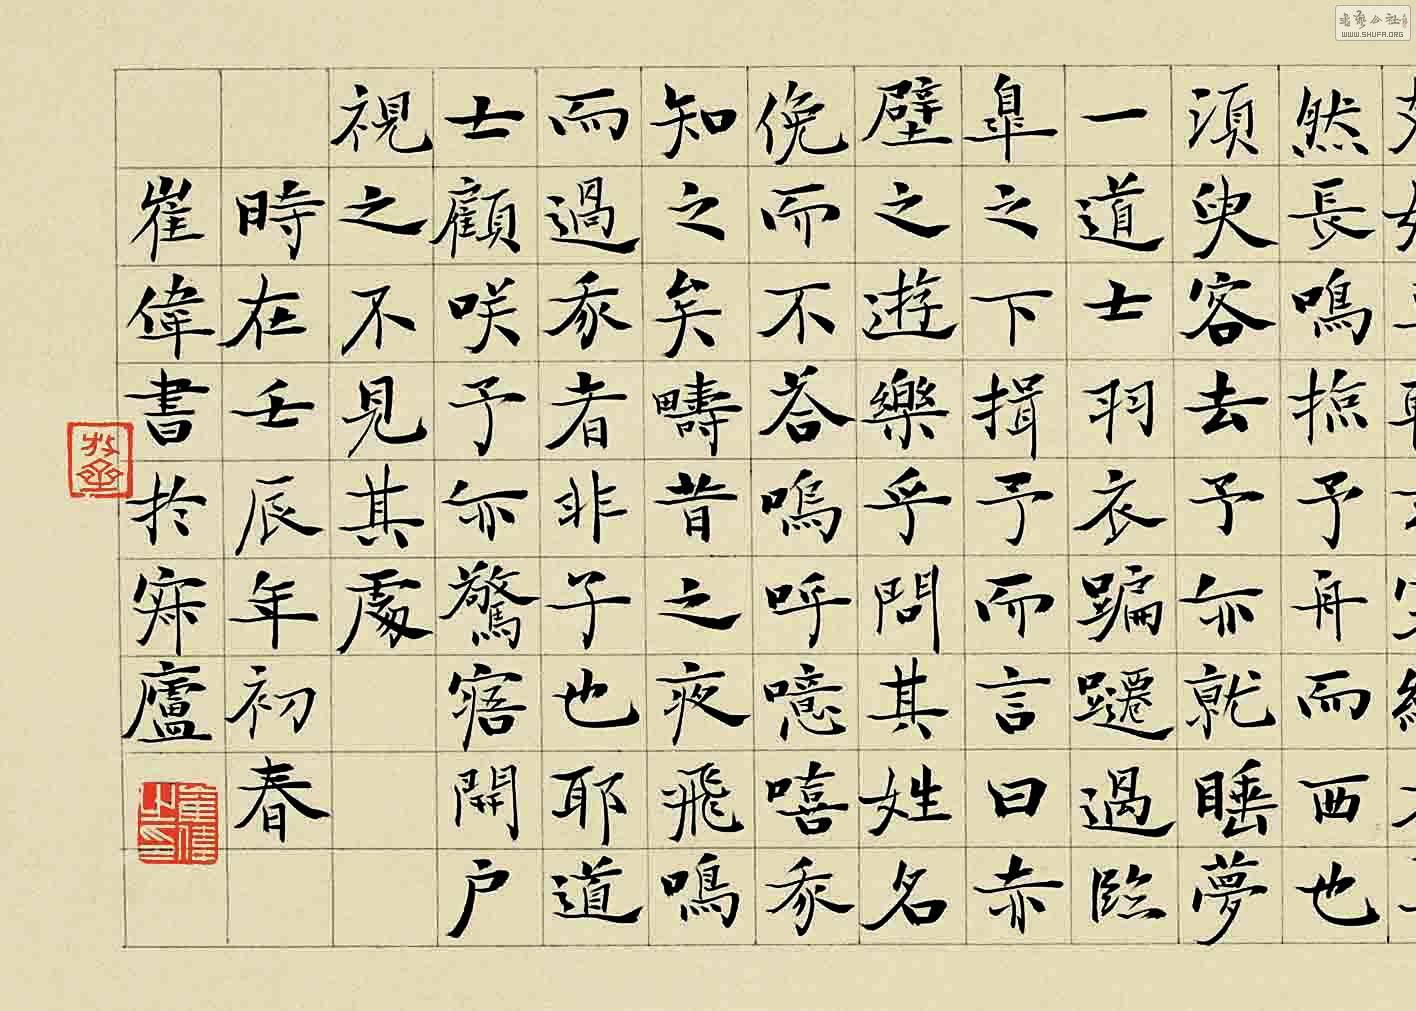 然長鳴掠予舟而西也
湏臾客去予亦就睡夢
一道士羽衣蹁躚過臨
皐之下揖予而言曰赤
壁之遊樂乎問其姓名
俛而不荅嗚呼噫嘻我
知之矣疇昔之夜飛鳴
而過我者非子也耶道
士顧咲予亦驚寤開户
視之不見其處
時在壬辰年初春
崔偉書於廬
崔偉之印
WWW.SHUFA.ORG